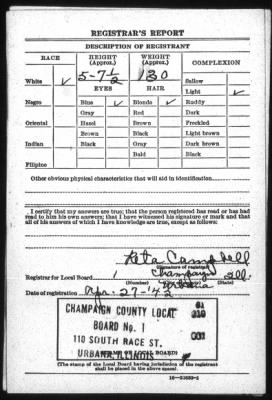 REGISTRAR'S REPORT
DESCRIPTION OF REGISTRANT
RACE HEIGHT (Approx.) WEIGHT (Approx.) COMPLEXION
5-7½ 130
White ✓ Sallow
EYES HAIR Light ✓
Negro Blue ✓ Blonde ✓ Ruddy
Gray Red Dark
Oriental Hazel Brown Freckled
Brown Black Light brown
Indian Black Gray Dark brown
Bald Black
Filipino
Other obvious physical characteristics that will aid in identification
I certify that my answers are true; that the person registered has read or has had
read to him his own answers; that I have witnessed his signature or mark and that
all of his answers of which I have knowledge are true, except as follows:
Reta Campbell
(Signature of registrar)
Registrar for Local Board 1 Champaign Ill.
(Number) (State)
Date of registration Apr. 27-42
CHAMPAIGN COUNTY LOCAL
BOARD No. 1
110 SOUTH RACE ST.
URBANA, ILLINOIS
(STAMP OF LOCAL BOARD)
(The stamp of the Local Board having jurisdiction of the registrant
shall be placed in the above space.)